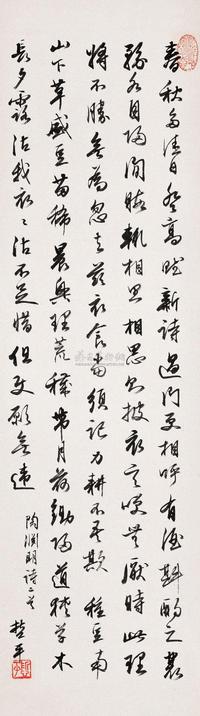 春秋多佳日登高賦新詩過門更相呼有酒斟酌之農
務各自歸閒暇輒相思相思則披衣言笑無厭時此理
將不勝無為忽去茲衣食當須記力耕不吾欺 種豆南
山下草盛豆苗稀晨興理荒穢帶月荷鋤歸道狹草木
長夕露沾我衣〻沾不足惜但使願無違
陶淵明詩二首